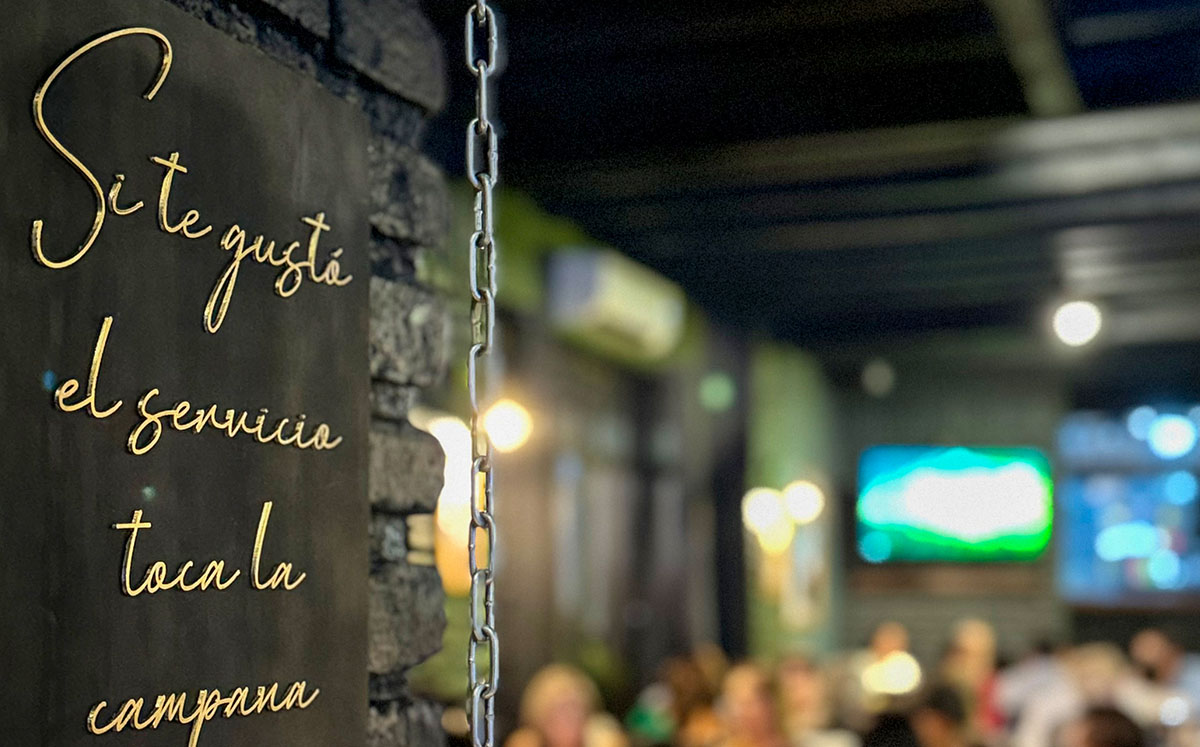 Si te gustó
el servicio
toca la
campana